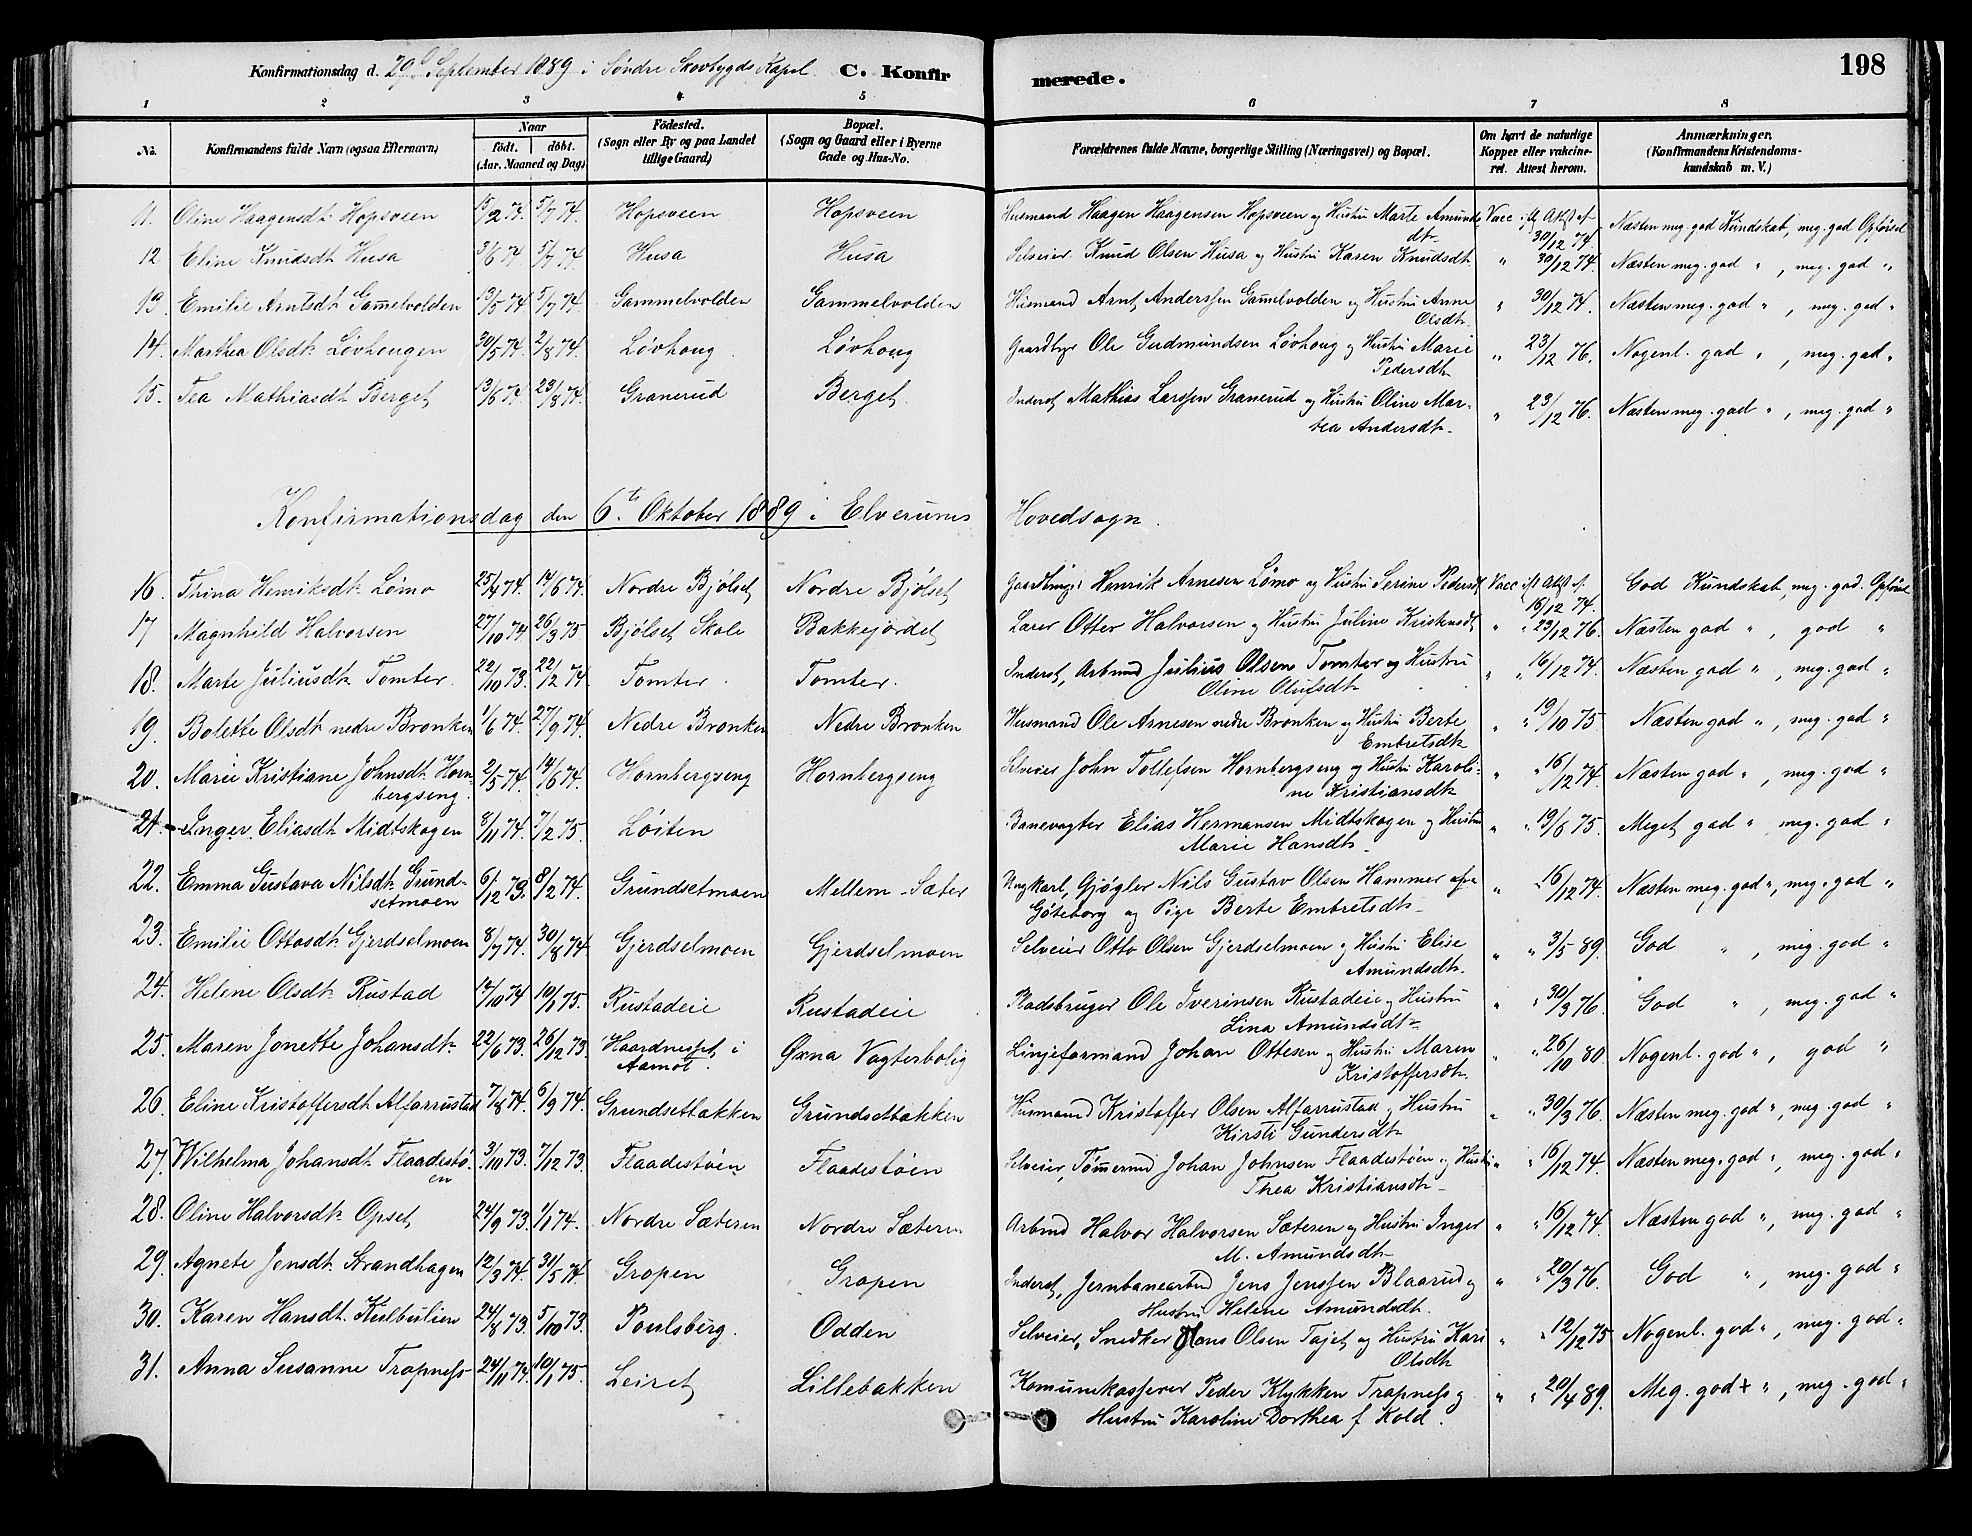 Konfirmationsdag d. 29de September 1889 i Søndre Skovbygds Kapel. C. Konfirmerede. 198
1 2 3 4 5 6 7 8
No. Konfirmandens fulde Navn (ogsaa Efternavn). Naar Födt. döbt. (Aar, Maaned og Dag) Födested. (Sogn eller By og paa Landet tillige Gaard) Bopæl. (Sogn og Gaard eller i Byerne Gade og Hus-No. Forældrenes fulde Navne, borgerlige Stilling (Næringsvei) og Bopæl. Om havt de naturlige Kopper eller vakcineret. Attest herom. Anmærkninger. (Konfirmandens Kristendomskundskab m. V.)
11. Oline Haagensdt. Hopsveen 15/2 74. 5/7 74. Hopsveen Hopsveen Husmand Haagen Haagensen Hopsveen og Hustru Marte Amundsdt. Vacc. ifl. Attst af 30/12 74. Næsten meg. god Kundskab, meg. god Opførsel
12 Eline Knudsdt. Husa 3/6 74 5/7 74. Husa Husa Selveier Knud Olsen Husa og Hustru Karen Knudsdt. " 30/12 74. Næsten meg. god " , meg. god "
13 Emilie Arntsdt. Gamelvolden 13/5 74 5/7 74. Gammelvolden Gammelvolden Husmand Arnt Anderssen Gamelvolden og Hustru Anne Olsdt. " 30/12 74. Næsten meg. god " , meg. god "
14. Marthea Olsdt. Løvhougen 30/5 74. 2/8 74. Løvhoug Løvhoug Gaardbgr Ole Gudmundsen Løvhoug og Hustru Marie Pedersdt. " 23/12 76. Nogenl. god " , meg. god "
15. Tea Mathiasdt. Berget 13/6 74. 23/8 74. Granerud Berget Inderst Mathias Larssen Granerud og Hustru Oline Martea Andersdt. " 23/12 76. Næsten meg. god " , meg. god "
Konfirmationsdag den 6te Oktober 1889 i Elverums Hovedsogn.
16. Thina Henriksdt. Lømo 25/4 74. 14/6 74. Nordre Bjølset Nordre Bjølset Henrik Arnesen Lømo og Hustru Serine Pedersdt. Vacc. ifl. Attst af 16/12 74. God Kundskab, meg. god. Opførsel
17 Magnhild Halvorsen 27/10 74 26/3 75 Bjølset Skole Bakkejordet Lærer Otter Halvorsen og Hustru Juline Kristensdt. " " 23/12 76. Næsten god " , god "
18. Marte Juliusdt. Tomter. 22/10 73. 22/2 74 Tomter. Tomter. Inderst, Arbmd Julius Olsen Tomter og Hustru Oline Olufsdt. " " 16/12 74. Næsten god " , meg. god "
19. Bolette Olsdt. nedre Bronken 1/6 74. 27/9 74. Nedre Bronken Nedre Bronken Husmand Ole Arnesen nedre Bronken og Hustru Berte Embretsdt. " " 19/10 75. Næsten god " , meg. god "
20. Marie Kristiane Johnsdt. Hornbergseng. 2/5 74. 14/6 74. Hornbergseng Hornbergseng Selveier John Tollefsen Hornbergseng og Hustru Karoline Kristiansdt. " " 16/12 74. Næsten god " , meg. god "
21. Inger Eliasdt. Midtskogen 8/11 74. 7/2 75. Løiten Banevogter Elias Hermansen Midtskogen og Hustru Marie Hansdt. " " 19/6 75. Meget god " , meg. god "
22. Emma Gustava Nilsdt. Grundsetmoen 6/12 73. 8/2 74. Grundsetmoen Mellem-Sæter Ungkarl, Gjøgler Nils Gustav Olsen Hammer fra Göteborg og Pige Berte Embretsdt. " " 16/12 74. Næsten meg. god ", meg. god "
23. Emilie Ottosdt. Gjerdselmoen 8/7 74. 30/8 74. Gjerdselmoen Gjerdselmoen Selveier Otto Olsen Gjerdselmoen og Hustru Elise Amundsdt. " " 3/5 89. God " , meg. god "
24. Helene Olsdt. Rustad 17/10 74 10/1 75. Rustadeie Rustadeie Pladsbruger Ole Iverinsen Rustadeie og Hustru Lina Amundsdt. " " 30/3 76. God " , meg. god "
25. Maren Jonette Johansdt. 22/6 73. 26/12 73 Haardneset i Aamot. Øxna Vogterbolig Linjeformand Johan Ottesen og Hustru Maren Kristoffersdt. " " 26/10 80 Nogenl. god " , god "
26. Eline Kristoffersdt. Alfarrustad 7/8 74. 6/9 74. Grundsetbakken Grundsetbakken Husmand Kristoffer Olsen Alfarrustad og Hustru Kirsti Gundersdt. " " 30/3 76. Næsten meg. god ", meg. god "
27. Wilhelma Johansdt. Flaadestøen 3/10 73. 7/12 73. Flaadestøen Flaadestøen Selveier, Tømermd Johan Johnsen Flaadestøen og Hustru Thea Kristiansdt. " " 16/12 74. Næsten meg. god ", meg. god "
28. Oline Halvorsdt. Opset 24/9 73. 1/1 74. Nordre Sæteren Nordre Sæteren Arbmd Halvor Halvorsen Sæteren og Hustru Inger M. Amundsdt. " " 16/12 74. Næsten god " , meg. god "
29. Agnete Jensdt. Strandhagen 12/3 74. 31/5 74 Gropen Gropen Inderst, Jernbanearbmd Jens Jenssen Blaarud og Hustru Helene Amundsdt. " " 20/3 76. God " , meg. god "
30. Karen Hansdt. Kulbulien 24/8 73. 5/10 73. Poulsberg. Odden Selveier, Snedker Hans Olsen Tajet og Hustru Kari Olsdt. " " 12/12 75 Nogenl. god ", meg. god "
31. Anna Susanne Trapness 24/11 74. 10/1 75. Leiret Lillebakken Komunekasserer Peder Klykken Trapness og Hustru Karoline Dorthea f. Kold. " " 20/4 89. Meg. god + ", meg. god "